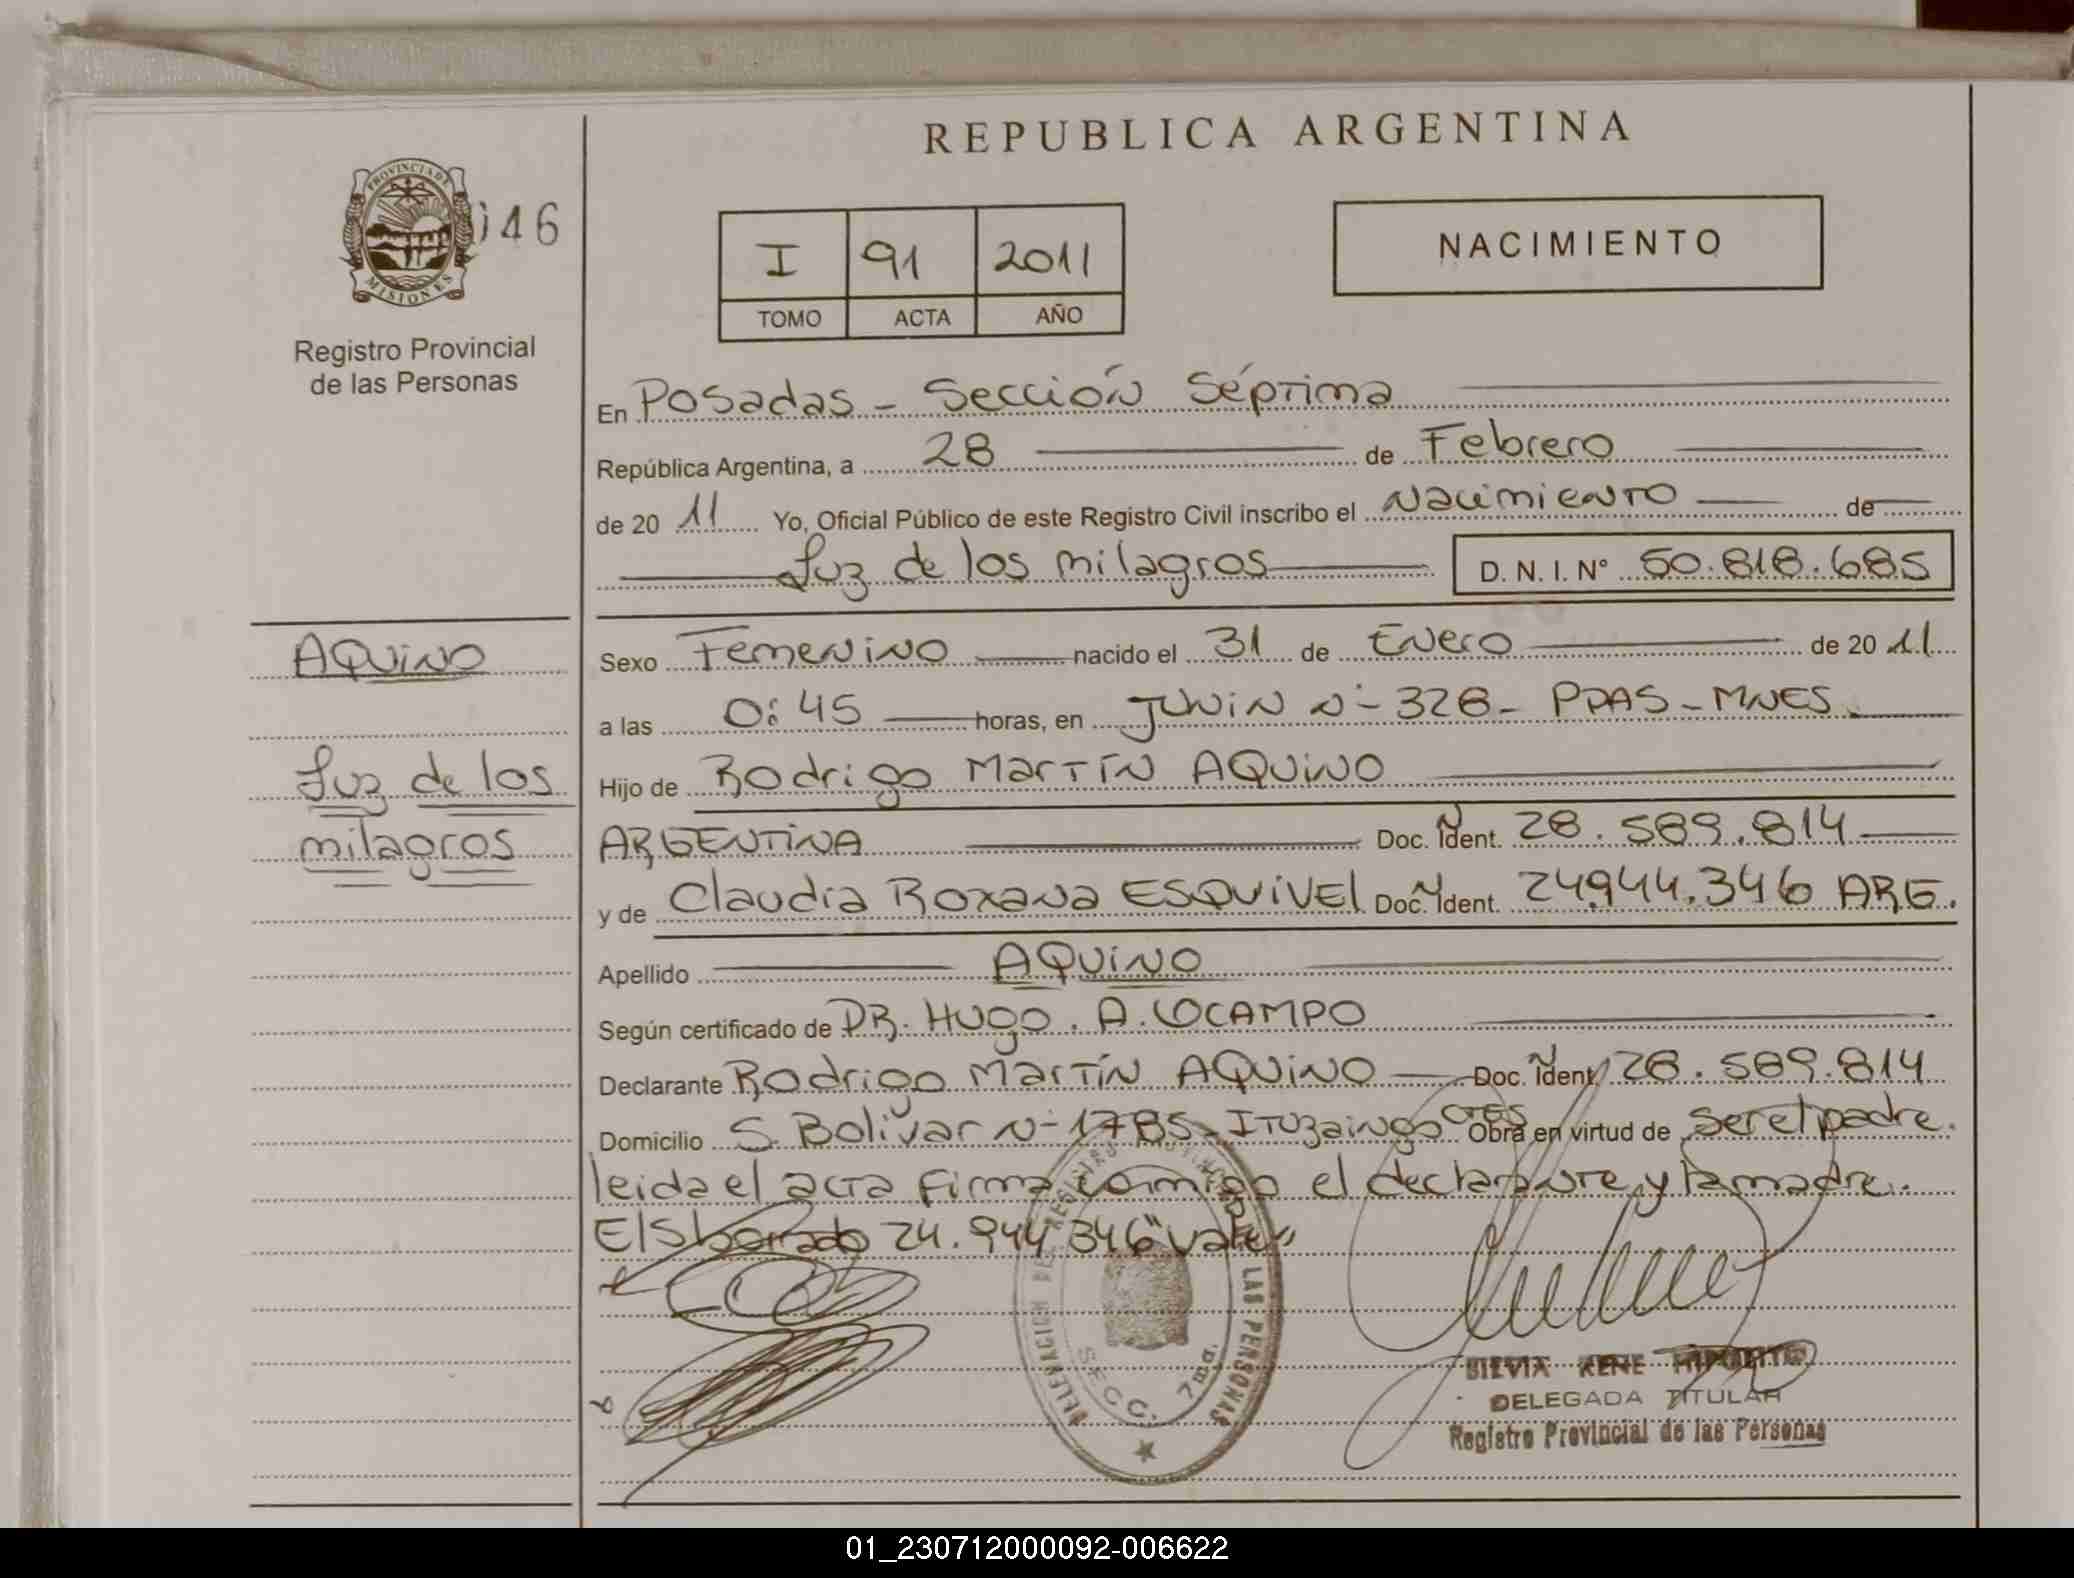 REPUBLICA ARGENTINA
PROVINCIA DE MISIONES
046
Registro Provincial
de las Personas
I 91 2011
TOMO ACTA AÑO
NACIMIENTO
En Posadas - Sección Séptima
República Argentina, a 28 de Febrero
de 20 11 Yo, Oficial Público de este Registro Civil inscribo el Nacimiento de
Luz de los milagros D. N. I. N° 50.818.685
AQUINO
Luz de los
milagros
Sexo Femenino nacido el 31 de Enero de 20 11
a las 0:45 horas, en JUNIN N- 328 - PDAS - MNES.
Hijo de Rodrigo Martín AQUINO
ARGENTINA Doc. Ident. 28.589.814
y de Claudia Roxana ESQUIVEL Doc. Ident. 24.944.346 ARG.
Apellido AQUINO
Según certificado de DR. HUGO. A. OCAMPO
Declarante Rodrigo Martín AQUINO Doc. Ident. 28.589.814
Domicilio S. Bolívar N- 1785 - ITUzaingo CTES Obra en virtud de ser el padre.
leida el acta firma conmigo el declarante y la madre.
El Sborrado 24.944 346 "vale"
DELEGACION DEL REGISTRO PROVINCIAL DE LAS PERSONAS
SECC. 7ma.
SILVIA RENE
DELEGADA TITULAR
Registro Provincial de las Personas
01_230712000092-006622